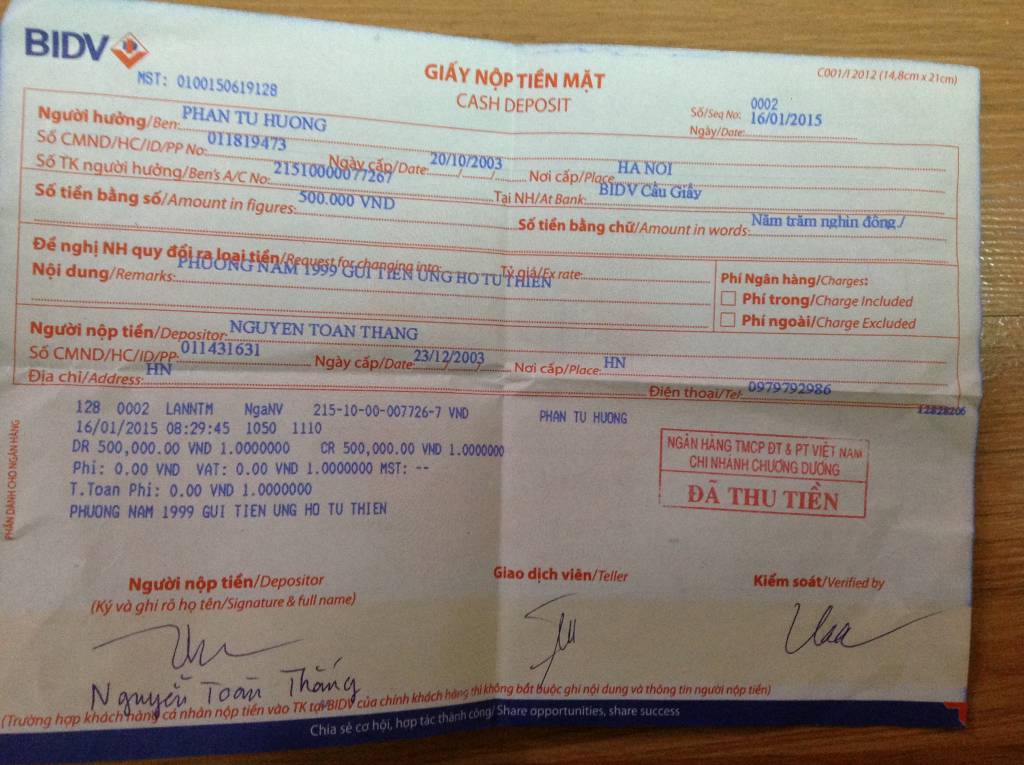 BIDV
MST: 0100150619128
GIẤY NỘP TIỀN MẶT
CASH DEPOSIT
C001/I 2012 (14,8cm x 21cm)
Số/Seq No: 0002
Ngày/Date: 16/01/2015
Người hưởng/Ben: PHAN TU HUONG
Số CMND/HC/ID/PP No: 011819473 Ngày cấp/Date: 20/10/2003 Nơi cấp/Place HA NOI
Số TK người hưởng/Ben's A/C No: 21510000077267 Tại NH/At Bank: BIDV Cầu Giấy
Số tiền bằng số/Amount in figures: 500.000 VND Số tiền bằng chữ/Amount in words: Năm trăm nghìn đồng./
Đề nghị NH quy đổi ra loại tiền/Request for changing into: Tỷ giá/Ex rate:
Nội dung/Remarks: PHUONG NAM 1999 GUI TIEN UNG HO TU THIEN
Phí Ngân hàng/Charges:
Phí trong/Charge Included
Phí ngoài/Charge Excluded
Người nộp tiền/Depositor: NGUYEN TOAN THANG
Số CMND/HC/ID/PP: 011431631 Ngày cấp/Date: 23/12/2003 Nơi cấp/Place: HN
Địa chỉ/Address: HN Điện thoại/Tel: 0979792986
12828206
PHẦN DÀNH CHO NGÂN HÀNG
128 0002 LANNTM NgaNV 215-10-00-007726-7 VND PHAN TU HUONG
16/01/2015 08:29:45 1050 1110
DR 500,000.00 VND 1.0000000 CR 500,000.00 VND 1.0000000
Phi: 0.00 VND VAT: 0.00 VND 1.0000000 MST: --
T.Toan Phi: 0.00 VND 1.0000000
PHUONG NAM 1999 GUI TIEN UNG HO TU THIEN
NGÂN HÀNG TMCP ĐT & PT VIỆT NAM
CHI NHÁNH CHƯƠNG DƯƠNG
ĐÃ THU TIỀN
Người nộp tiền/Depositor
(Ký và ghi rõ họ tên/Signature & full name)
Giao dịch viên/Teller
Kiểm soát/Verified by
Nguyễn Toàn Thắng
(Trường hợp khách hàng cá nhân nộp tiền vào TK tại BIDV của chính khách hàng thì không bắt buộc ghi nội dung và thông tin người nộp tiền)
Chia sẻ cơ hội, hợp tác thành công/ Share opportunities, share success